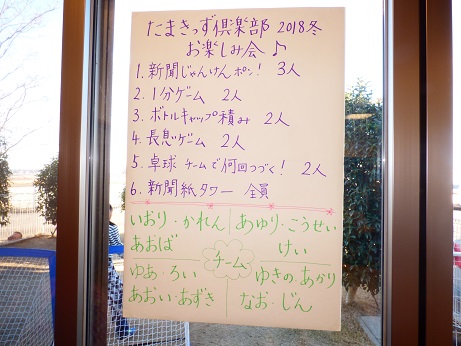 たまきっず倶楽部 2018冬
お楽しみ会♪
1. 新聞じゃんけんポン! 3人
2. 1分ゲーム 2人
3. ボトルキャップ積み 2人
4. 長息ゲーム 2人
5. 卓球 チームで何回つづく! 2人
6. 新聞紙タワー 全員
いおり・かれん
あおば
あゆり・こうせい
けい
チーム
ゆあ・ろい
あおい・あずき
ゆきの・あかり
なお・じん